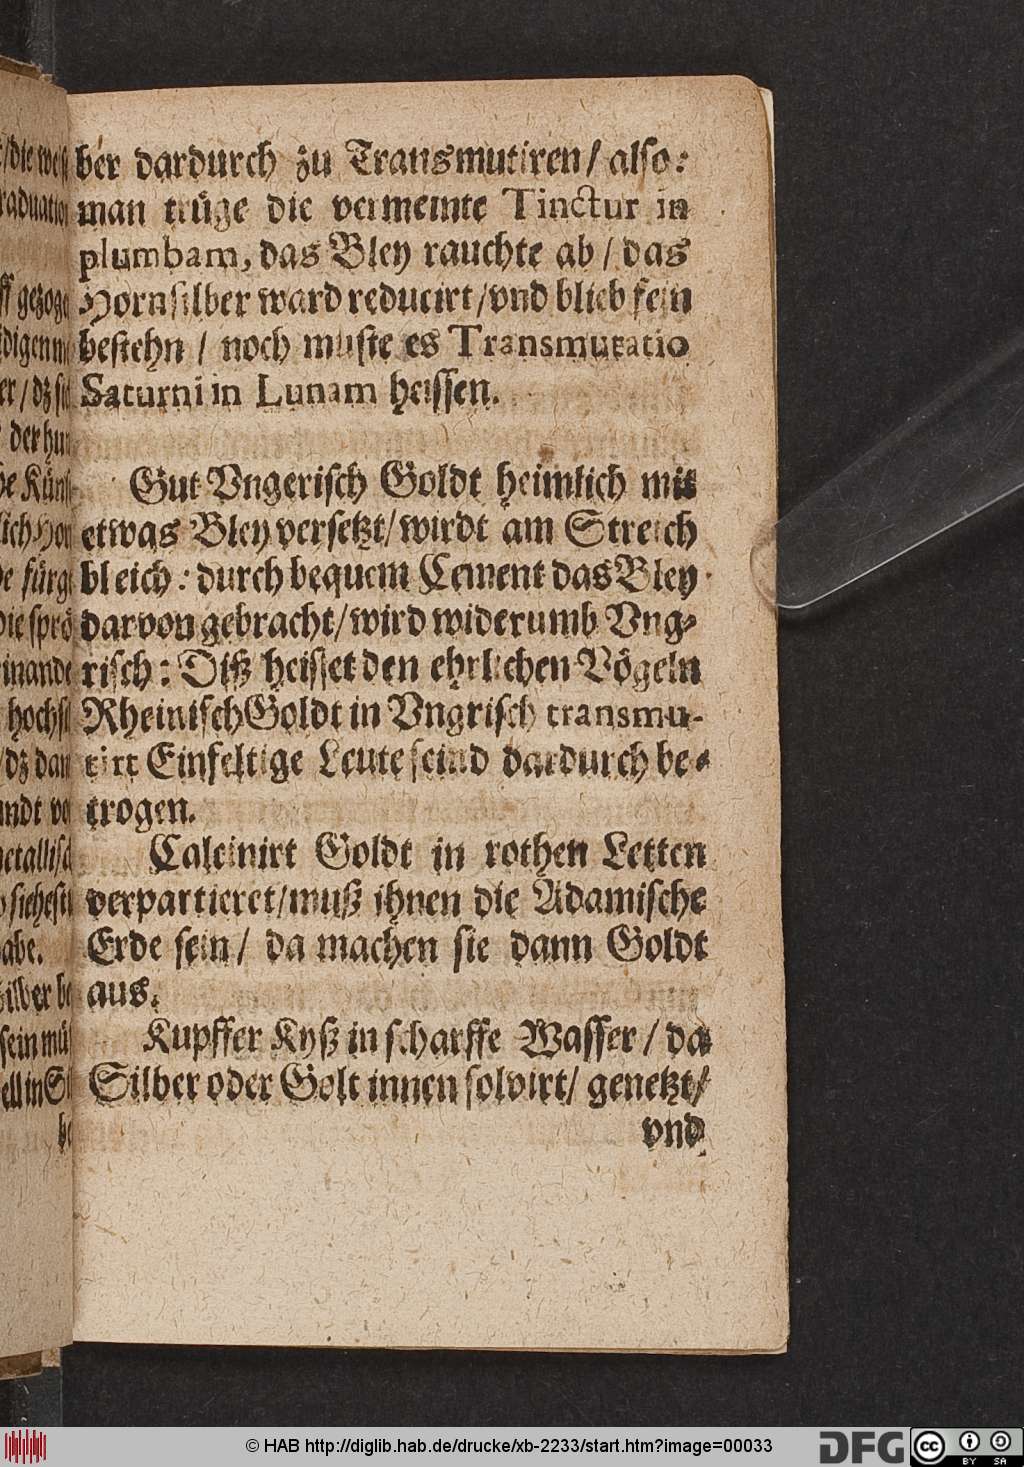 ber dardurch zu Transmutiren / also:
man trüge die vermeinte Tinctur in
plumbam, das Bley rauchte ab / das
Hornsilber ward reducirt / vnd blieb fein
bestehn / noch muste es Transmutatio
Saturni in Lunam heissen.
Gut Vngerisch Goldt heimlich mit
etwas Bley versetzt / wirdt am Streich
bleich: durch bequem Cement das Bley
darvon gebracht / wird widerumb Vng-
risch: Diß heisset den ehrlichen Vögeln
Rheinisch Goldt in Vngrisch transmu-
tirt Einfeltige Leute seind dardurch be-
trogen.
Calcinirt Goldt in rothen Letten
verpartieret / muß ihnen die Adamische
Erde sein / da machen sie dann Goldt
aus.
Kupffer Kyß in scharffe Wasser / da
Silber oder Golt innen solvirt / genetzt /
vnd
© HAB http://diglib.hab.de/drucke/xb-2233/start.htm?image=00033
DFG
cc BY SA